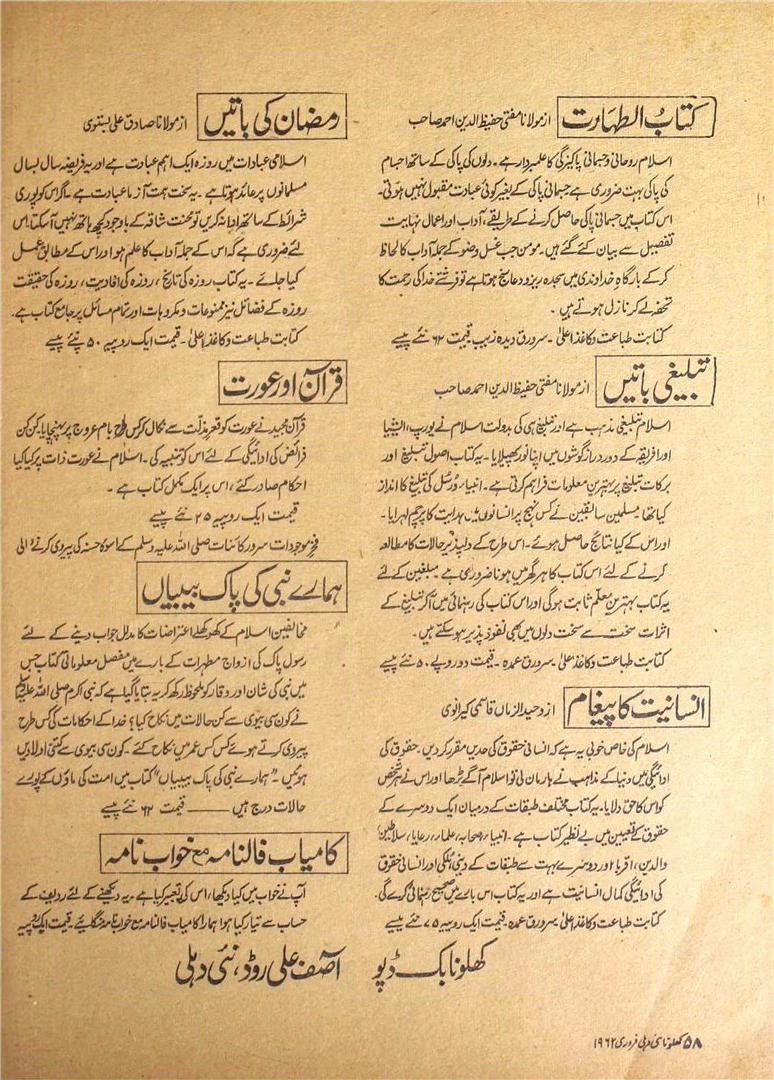 کتابُ الطہَارت
از مولانا مفتی حفیظ الدین احمد صاحب
اسلام روحانی و جسمانی پاکیزگی کا علمبردار ہے۔ دلوں کی پاکی کے ساتھ اجسام
کی پاکی بہت ضروری ہے جسمانی پاکی کے بغیر کوئی عبادت مقبول نہیں ہوتی۔
اس کتاب میں جسمانی پاکی حاصل کرنے کے طریقے، آداب اور اعمال نہایت
تفصیل سے بیان کئے گئے ہیں۔ مومن جب غسل و وضو کے جملہ آداب کا لحاظ
کر کے بارگاہِ خداوندی میں سجدہ ریز و دعا سنج ہوتا ہے تو فرشتے خدا کی رحمت کا
تحفہ لے کر نازل ہوتے ہیں۔
کتابت طباعت و کاغذ اعلیٰ۔ سرورق دیدہ زیب قیمت ۶۲ نئے پیسے
تبلیغی باتیں
از مولانا مفتی حفیظ الدین احمد صاحب
اسلام تبلیغی مذہب ہے اور تبلیغ ہی کی بدولت اسلام نے یورپ، ایشیا
اور افریقہ کے دور دراز گوشوں میں اپنا نور پھیلایا۔ یہ کتاب اصول تبلیغ اور
برکات تبلیغ پر بہترین معلومات فراہم کرتی ہے۔ انبیاء و رُسل کی تبلیغ کا انداز
کیا تھا۔ مسلمین سابقین نے کس نہج پر انسانوں میں ہدایت کا پرچم لہرایا۔
اور اس کے کیا نتائج حاصل ہوئے۔ اس طرح کے دلپذیر حالات کا مطالعہ
کرنے کے لئے اس کتاب کا ہر گھر میں ہونا ضروری ہے۔ مبلغین کے لئے
یہ کتاب بہترین معلم ثابت ہوگی اور اس کتاب کی رہنمائی میں آکر تبلیغ کے
اثرات سخت سے سخت دلوں میں بھی نفوذ پذیر ہو سکتے ہیں۔
کتابت طباعت و کاغذ اعلیٰ۔ سرورق عمدہ۔ قیمت دو روپے ۵۰ نئے پیسے
انسانیت کا پیغام
از وحید الزماں قاسمی کیرانوی
اسلام کی خاص خوبی یہ ہے کہ انسانی حقوق کی حدیں مقرر کر دیں۔ حقوق کی
ادائیگی میں دنیا کے مذاہب نے ہار مان لی تو اسلام آگے بڑھا اور اس نے ہر شخص
کو اس کا حق دلایا۔ یہ کتاب مختلف طبقات کے درمیان ایک دوسرے کے
حقوق کے تعیین میں بے نظیر کتاب ہے۔ انبیاء، صحابہ، علماء، رعایا، سلاطین،
والدین، اقربا اور دوسرے بہت سے طبقات کے دینی، ملکی اور انسانی حقوق
کی ادائیگی کمال انسانیت ہے اور یہ کتاب اس بارے میں صحیح رہنمائی کرے گی،
کتابت طباعت و کاغذ اعلیٰ۔ سرورق عمدہ۔ قیمت ایک روپیہ ۷۵ نئے پیسے
رمضان کی باتیں
از مولانا صادق علی بستوی
اسلامی عبادات میں روزہ ایک اہم عبادت ہے اور یہ فریضہ سال بسال
مسلمانوں پر عائد ہوتا ہے۔ یہ سخت ہمت آزما عبادت ہے۔ اگر اس کو پوری
شرائط کے ساتھ ادا نہ کریں تو محنت شاقہ کے باوجود کچھ ہاتھ نہیں آسکتا۔ اس
لئے ضروری ہے کہ اس کے جملہ آداب کا علم ہو اور اس کے مطابق عمل
کیا جائے۔ یہ کتاب روزہ کی تاریخ، روزہ کی افادیت، روزہ کی حقیقت
روزہ کے فضائل نیز ممنوعات و مکروہات اور تمام مسائل پر جامع کتاب ہے۔
کتابت طباعت و کاغذ اعلیٰ۔ قیمت ایک روپیہ ۵۰ نئے پیسے
قرآن اور عورت
قرآن مجید نے عورت کو قعرِ مذلّت سے نکال کر کس طرح بامِ عروج پر پہنچایا، کن کن
فرائض کی ادائیگی کے لئے اس کو تنبیہ کی۔ اسلام نے عورت ذات پر کیا کیا
احکام صادر کئے، اس پر ایک مکمل کتاب ہے۔
قیمت ایک روپیہ ۲۵ نئے پیسے
فخرِ موجودات سرورِ کائنات صلی اللہ علیہ وسلم کے اسوۂ حسنہ کی پیروی کرنے والی
ہمارے نبی کی پاک بیبیاں
مخالفین اسلام کے کھوکھلے اعتراضات کا مدلل جواب دینے کے لئے
رسول پاک کی ازواج مطہرات کے بارے میں مفصل معلوماتی کتاب جس
میں نبی کی شان اور وقار کو ملحوظ رکھ کر یہ بتایا گیا ہے کہ نبی اکرم صلی اللہ علیہ وسلم
نے کون سی بیوی سے کن حالات میں نکاح کیا؟ خدا کے احکامات کی کس طرح
پیروی کرتے ہوئے کس کس عمر میں نکاح کئے۔ کون سی بیوی سے کتنی اولادیں
ہوئیں۔ "ہمارے نبی کی پاک بیبیاں" کتاب میں امت کی ماؤں کے پورے
حالات درج ہیں ——— قیمت ۶۲ نئے پیسے
کامیاب فالنامہ مع خواب نامہ
آپ نے خواب میں کیا دیکھا، اس کی تعبیر کیا ہے۔ یہ دیکھنے کے لئے ردیف کے
حساب سے تیار کیا ہوا ہمارا کامیاب فالنامہ مع خواب نامہ منگائیے۔ قیمت ایک روپیہ
کھلونا بک ڈپو آصف علی روڈ، نئی دہلی
۵۸ کھلونا نئی دہلی فروری ۱۹۶۲